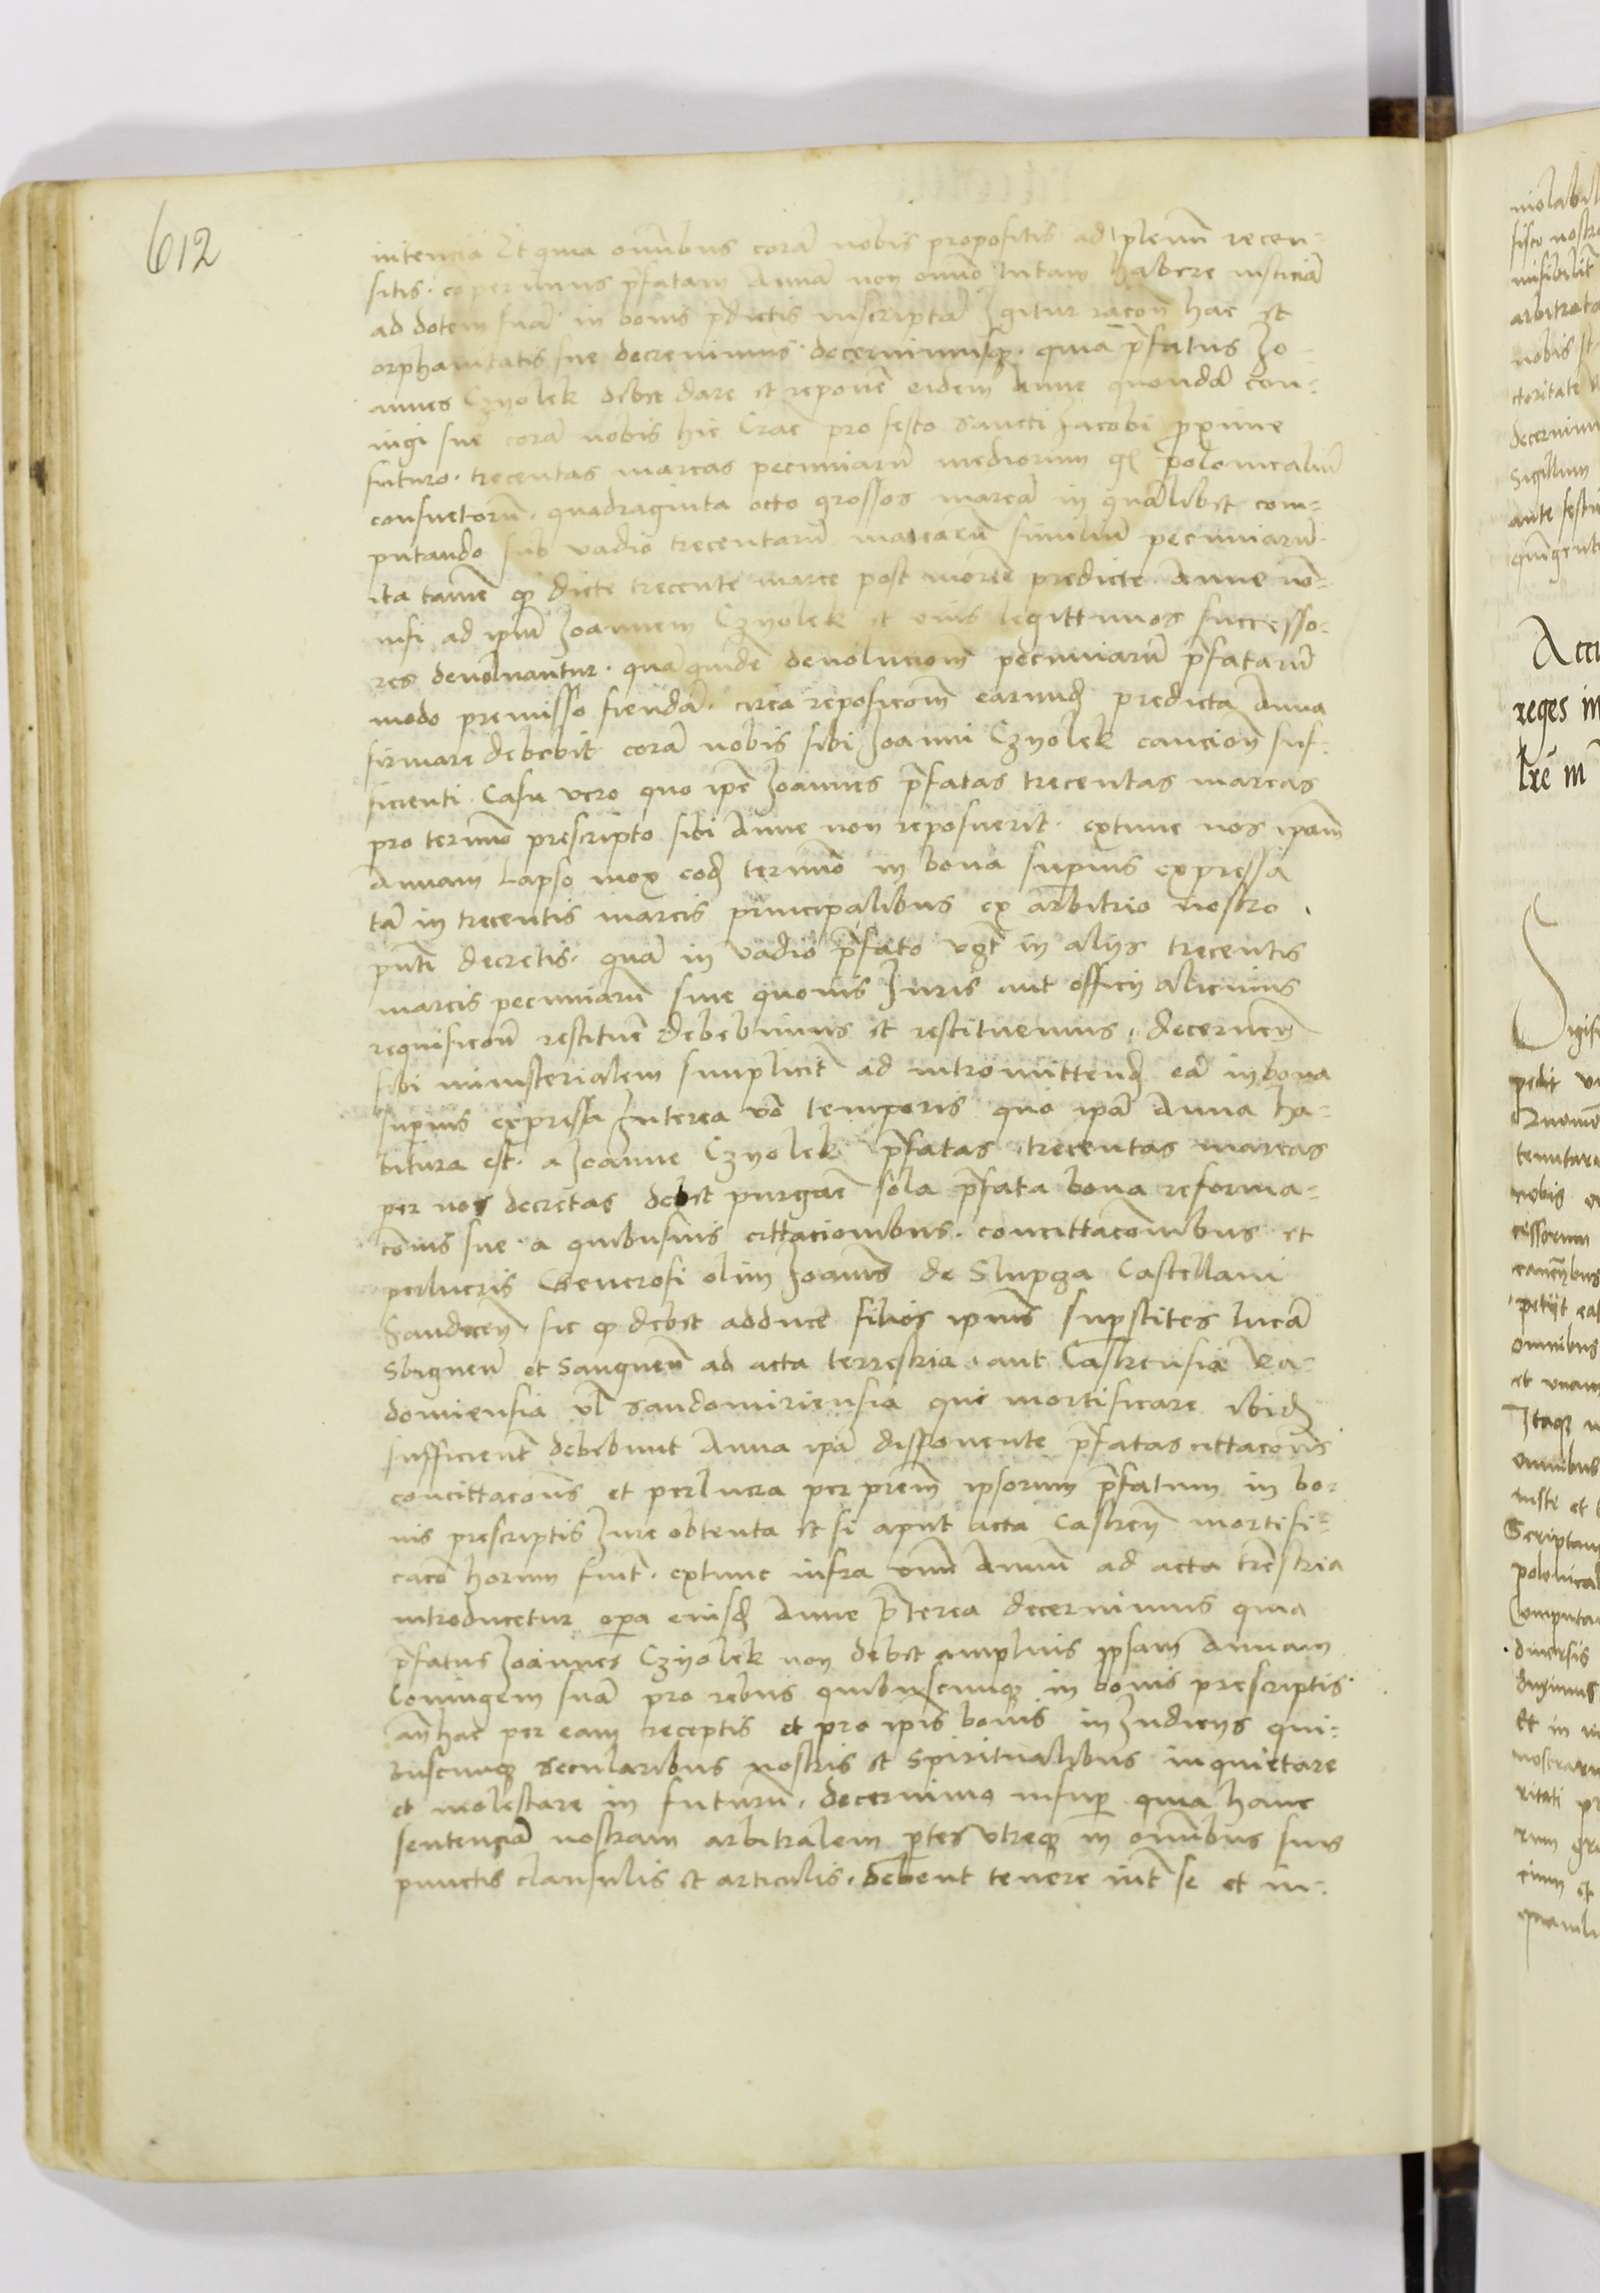 612
intencio Et quia omībus corā nobis propositis ad plenū recen-
sitis. coperimus p̄fatam Annā non omīo lutam habere iusticiā
ad dotem suā in bonis p̄dictis inscriptā Igitur racōn hac et
orphanitatis sue decrevimus. decernimusq̨. quia p̄fatus Jo-
annes Czyolek debet dare et reponē eidem Anne quondā con-
iugi sue corā nobis hic Crac pro festo sancti Jacobi proxime
futuro. trecentas marcas pecuniarū mediorum gͬ polonicaliū
consuetorū. quadraginta octo grossos marcā in quālibet com-
putando sub vadio trecentarū marcarū similiū pecuniarū.
ita tamē q̨ dicte trecente marce post mortē predicte Anne nō-
nisi ad ipm̄ Joannem Czyolek et eius legittimos successo-
res devolvantur. quāquidē devolucionē pecuniarū p̄fatarū
modo premisso fiendā. circa reposicōm earund predicta Anna
firmare debebit corā nobis sibi Joanni Czyolek caucion suf-
ficienti. Casu vero quo ipē Joannes p̄fatas trecentas marcas
pro termīo prescripto sibi Anne non reposuerit. extunc nos ipam̄
Annam Lapso mox eod termīo in bona supius expressa
tā in trecentis marcis principalibus ex arbitrio nostro
pn̄ti decretis. quā in vadio p̄fato vꝫt in aliys trecentis
marcis pecuniarū sine quovis Juris aut officy alicuius
requisicōn̄ restituē debebimus et restituemus. decernen
sibi ministerialem simplicit̄ ad intromittend eā in bona
supius expressa Interea v̄o temporis quo ipā Anna ha-
bitura est. a Joanne Czyolek p̄fatas trecentas marcas
per nos decretas debet purgare sola p̄fata bona reforma-
cōnis sue. a quibusvis cittacionibus. concittacōnibus et
perlucris Generosi olim Joan̄is de Slupcza Castellani
Sandecen. sic q̨ debet adducē filios ipius supstites lucā
Sbigneū et Sangneū ad acta terrestria. aut Castrensia Ra-
domiensia vl̄ Sandomiriensia qui mortificare ibid
sufficient̄ debebunt Anna ipā disponente p̄fatas cittacōns
concittacōns et perlucra per prem̄ ipsorum p̄fatum in bo-
nis prescriptis Jure obtenta et si aput acta Castren mortifi-
cacō horum fuit. extunc infra vnū Annū ad acta trestria
introducetur opa eiusd Anne p̄terea decernimus quia
p̄fatus Joannes Czyolek non debet amplius ipsam Annam
Coniugem suā pro rebus quibuscunq̨ in bonis prescriptis
an̄hac per eam receptis et pro ipis bonis in Judicys qui-
buscunq̨ secularibus nostris et Spiritualibus inquietare
et molestare in futurū. decernimo insup quia hanc
sentenciā nostram arbitralem ptes utreq̨ in omībus suis
punctis clausulis et articulis. debent tenere int̄ se et in-
violabil
fisco nostro
misibilit̄
arbitrata
nobis et
ctoritate
decernimu
Sigillum
ante festu
quingente
reges in
Lrē in
Sigis
pedit
tenutar
nobis
cessorum
petyt eas
omnibus
et unam
Itaq̨
omnibus
iuste et
Scriptam
polonical
Computa
diversis
Et in
nostraru
ritati